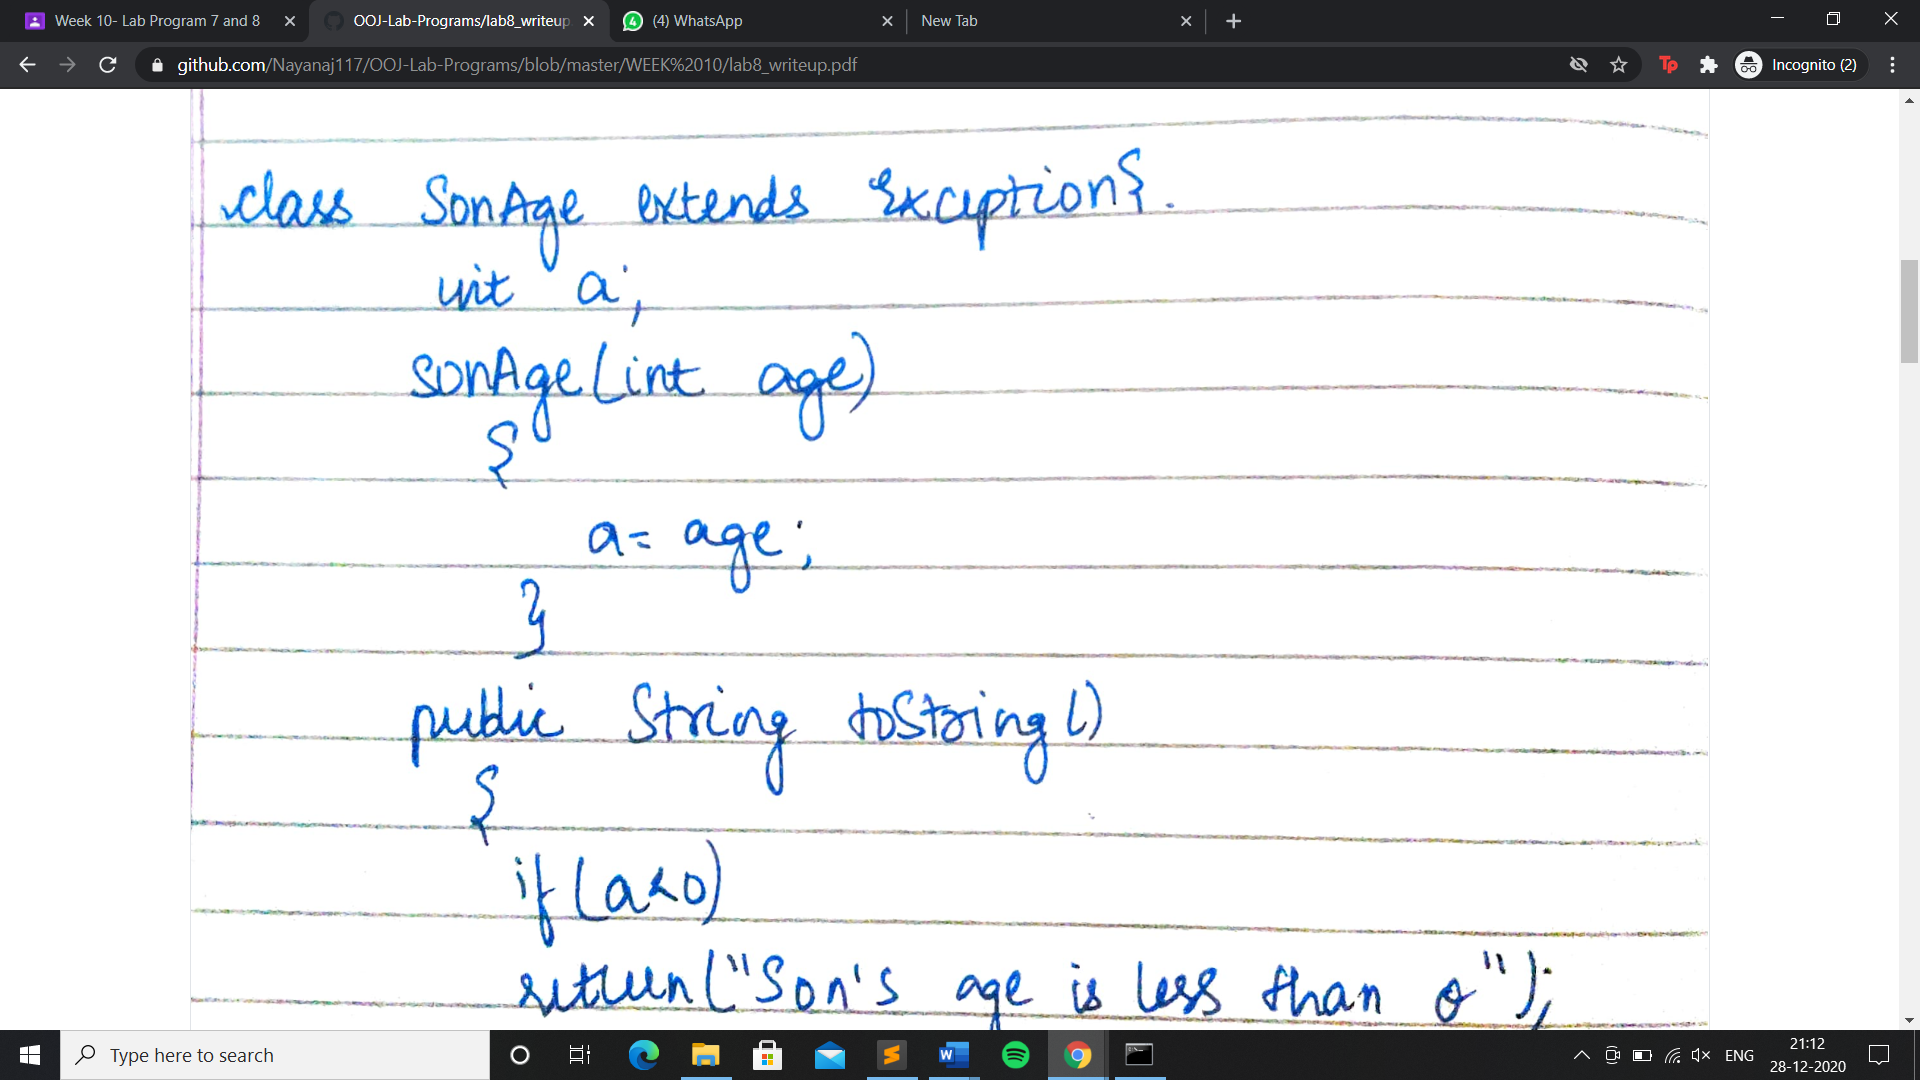 Week 10- Lab Program 7 and 8
OOJ-Lab-Programs/lab8_writeup
(4) WhatsApp
New Tab
github.com/Nayanaj117/OOJ-Lab-Programs/blob/master/WEEK%2010/lab8_writeup.pdf
Tp
Incognito (2)
class SonAge extends Exception{.
int a;
sonAge(int age)
{
a= age;
}
public String toString()
{
if(a<0)
return("Son's age is less than 0");
Type here to search
ENG
21:12
28-12-2020